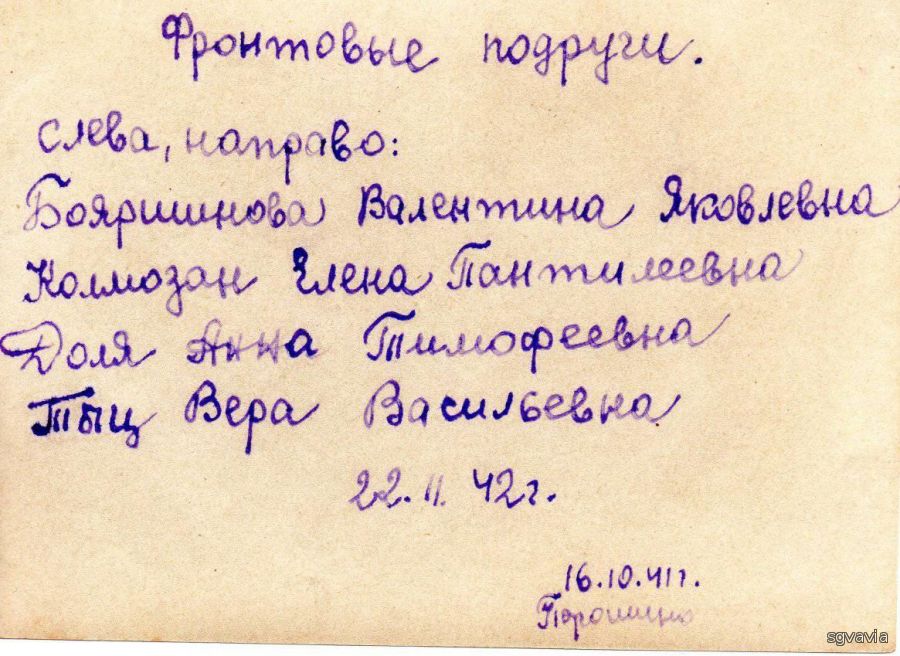 Фронтовые подруги.
слева, направо:
Бояршинова Валентина Яковлевна
Колмозан Елена Пантилеевна
Доля Анна Тимофеевна
Тыц Вера Васильевна
22. II. 42г.
16.10.41г.
Порошино
sgvavia